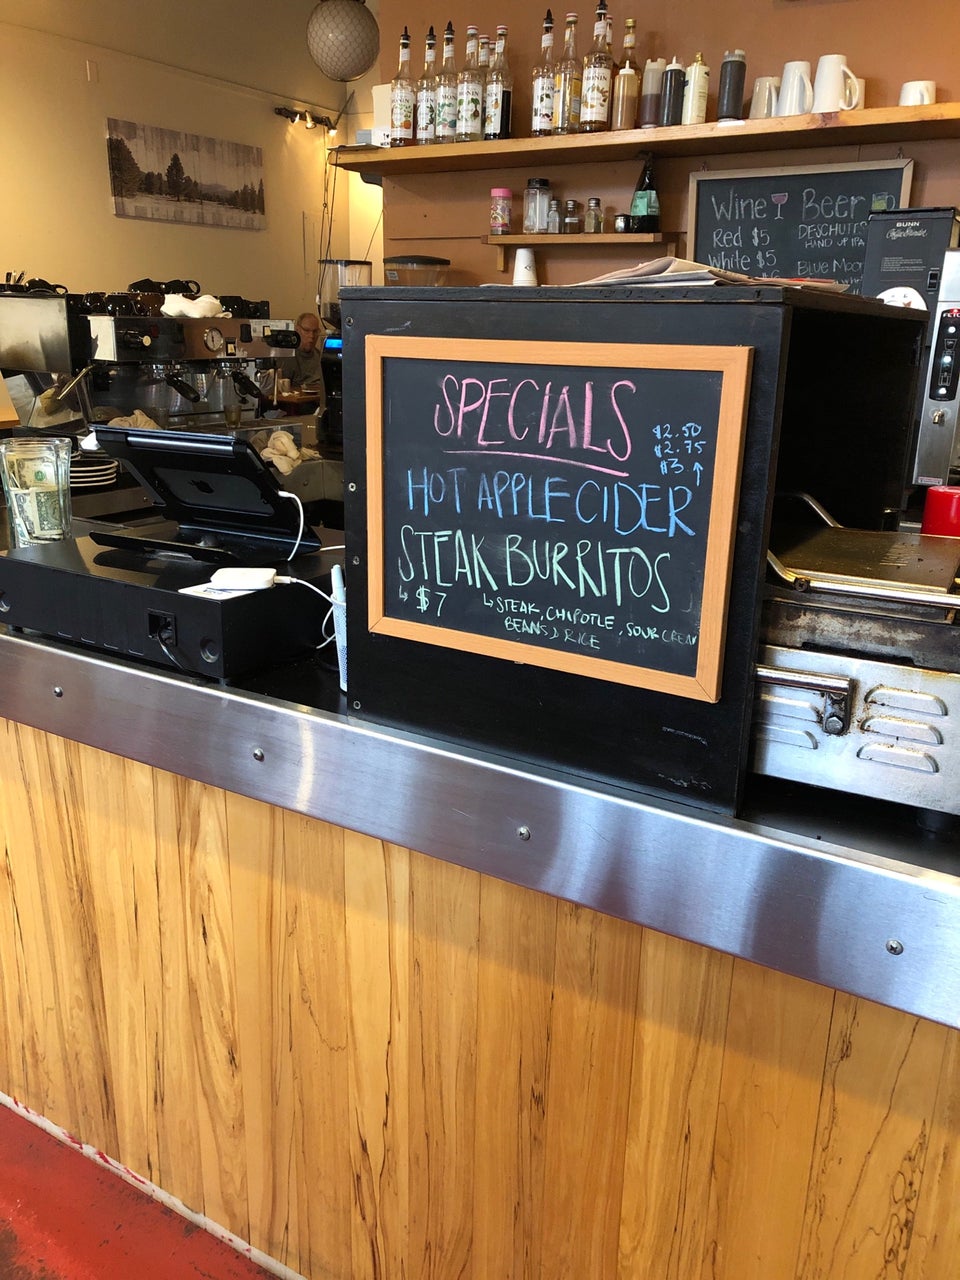 Wine Beer
Red $5
White $5
DESCHUTES
HAND UP IPA
Blue Moon
BUNN
MONIN
SPECIALS
$2.50
$2.75
$3 ↑
HOT APPLE CIDER
STEAK BURRITOS
↳ $7
↳ STEAK, CHIPOTLE, SOUR CREAM
BEANS & RICE